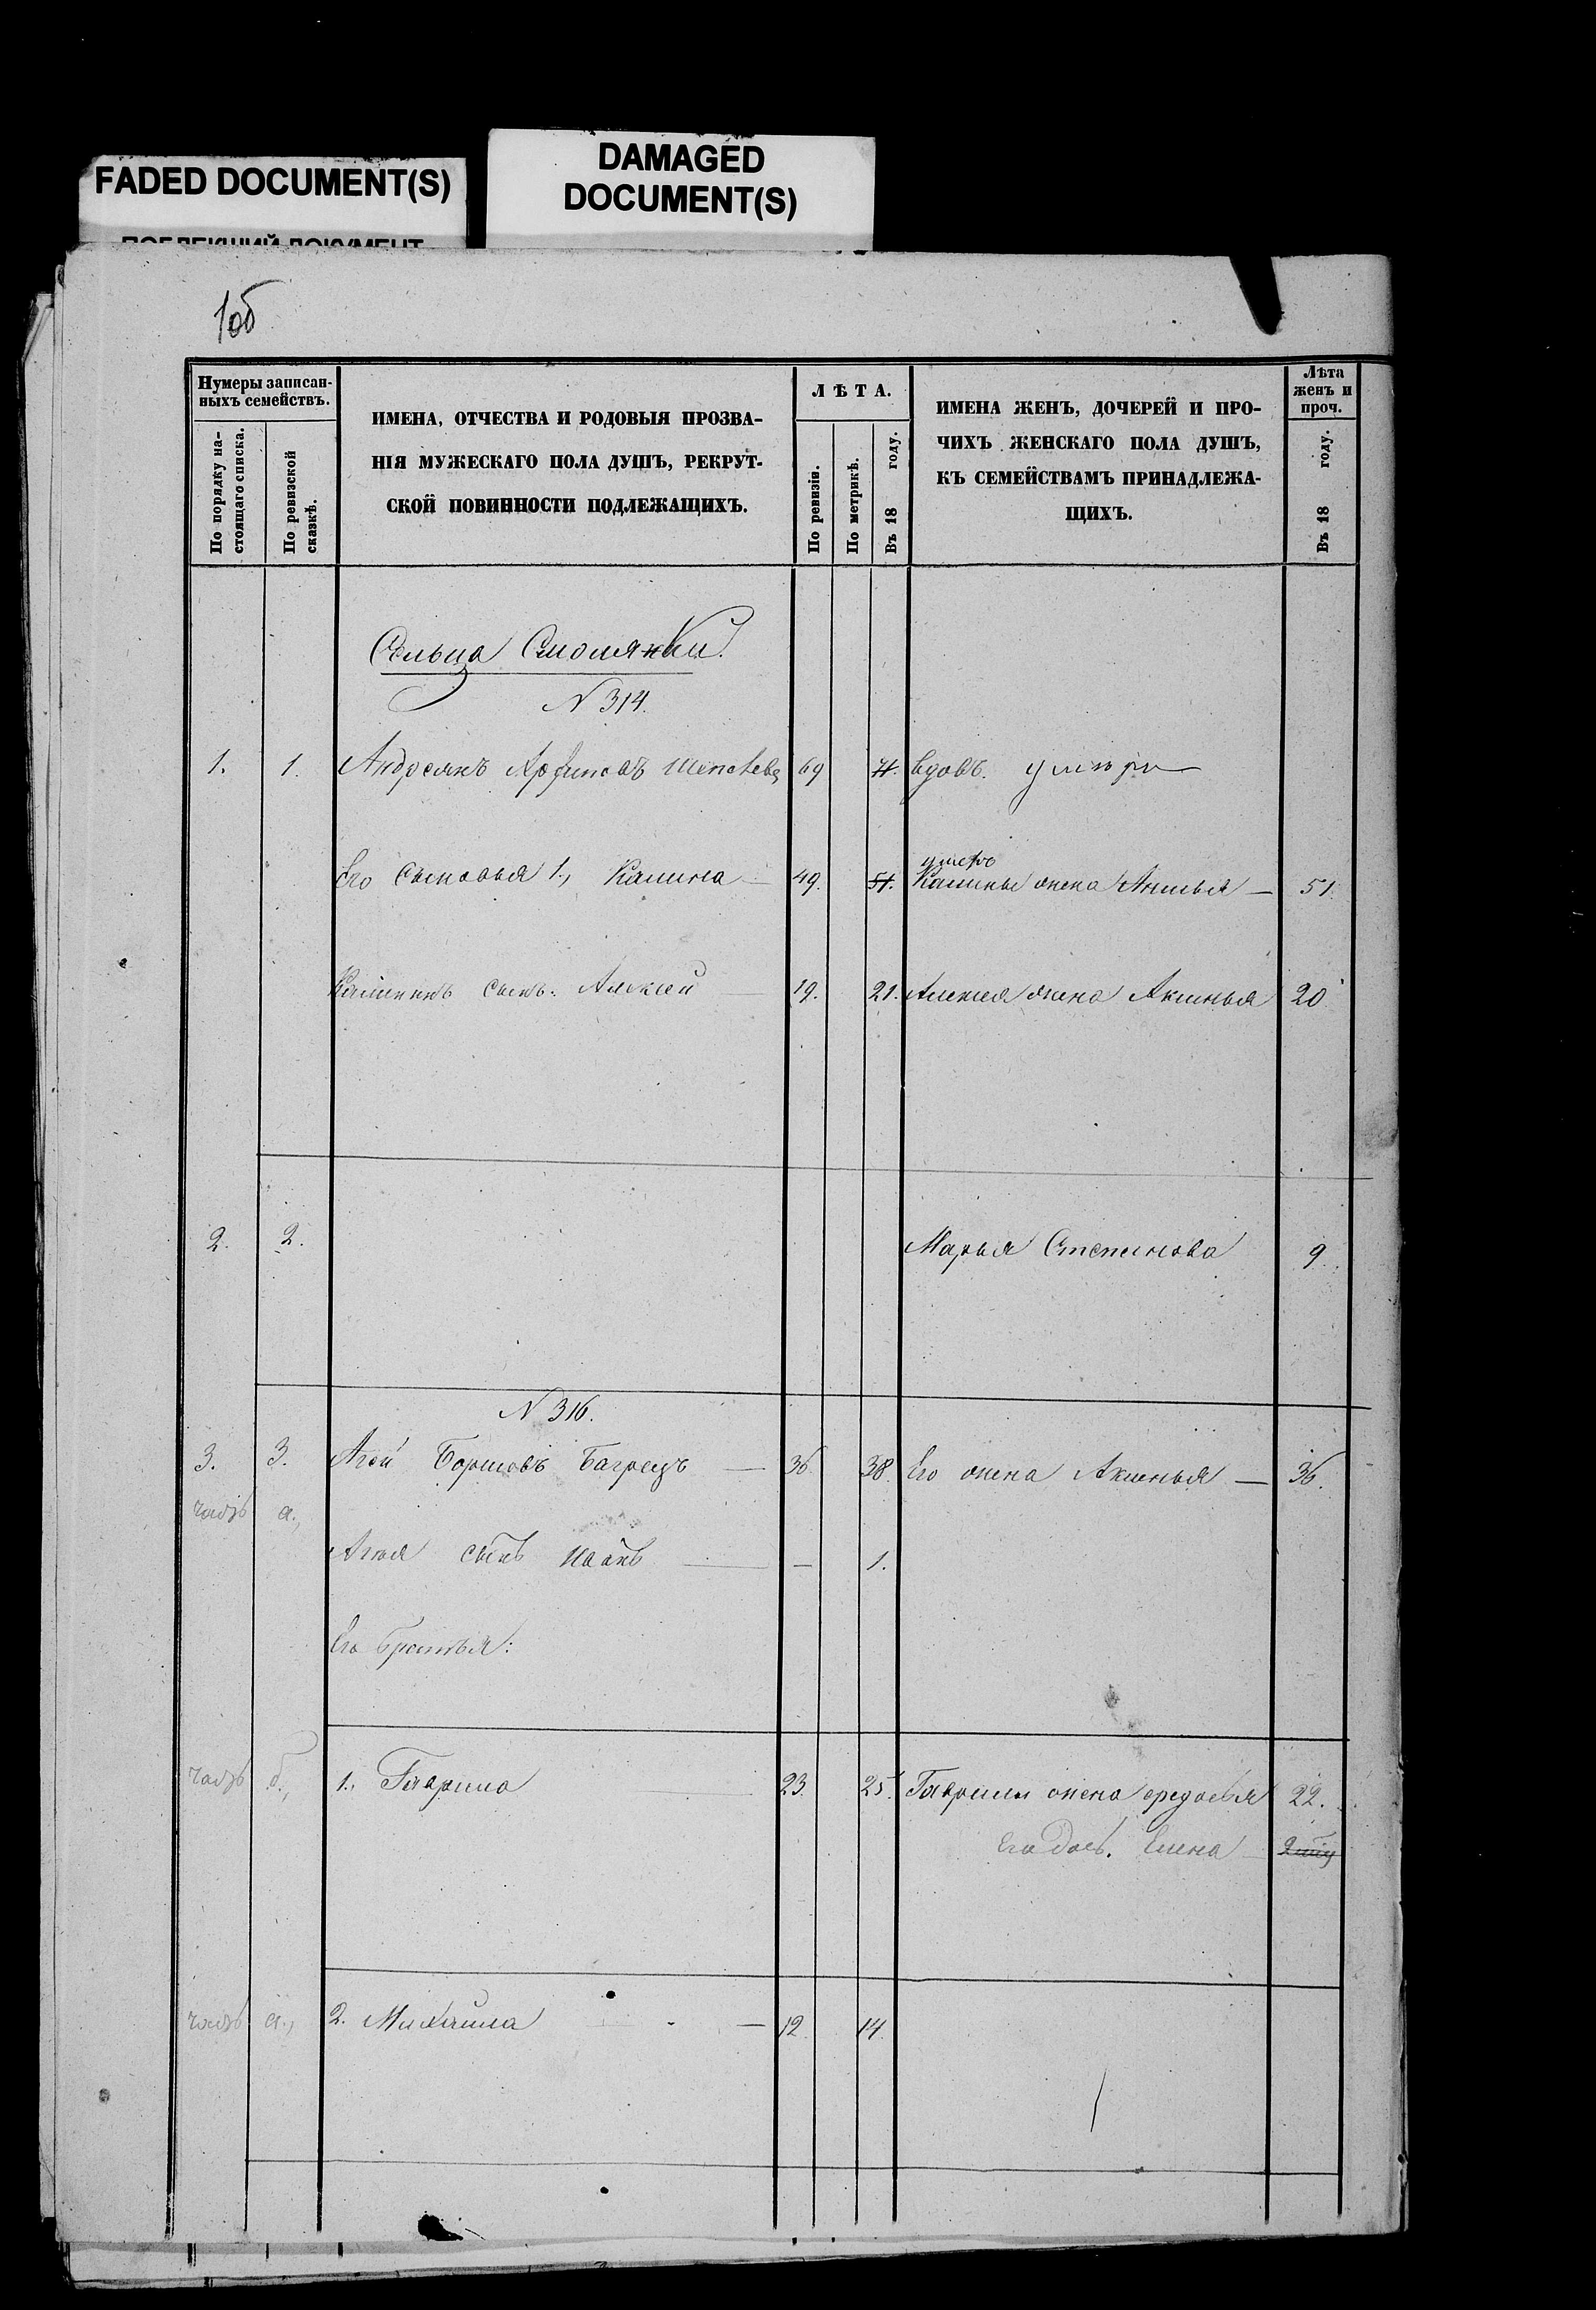 FADED DOCUMENT(S)
DAMAGED
DOCUMENT(S)
ПОБЛЕКШИЙ ДОКУМЕНТ
1об
Нумеры записан-
ныхъ семействъ.
По порядку на-
стоящаго списка.
По ревизской
сказкѣ.
ИМЕНА, ОТЧЕСТВА И РОДОВЫЯ ПРОЗВА-
НІЯ МУЖЕСКАГО ПОЛА ДУШЪ, РЕКРУТ-
СКОЙ ПОВИННОСТИ ПОДЛЕЖАЩИХЪ.
ЛѢТА.
По ревизіи.
По метрикѣ.
Въ 18 году.
ИМЕНА ЖЕНЪ, ДОЧЕРЕЙ И ПРО-
ЧИХЪ ЖЕНСКАГО ПОЛА ДУШЪ,
КЪ СЕМЕЙСТВАМЪ ПРИНАДЛЕЖА-
ЩИХЪ.
Лѣта
женъ и
проч.
Въ 18 году.
Сельца Смолянки.
N 314.
1. 1. Андреянъ 69 71. вдовъ.
умеръ
Его сыновья 1., Калина — 49. 51. Калины жена Анисья — 51.
Калининъ сынъ. Алексей — 19. 21. Алексея жена Аксинья 20
2. 2. Марья Степанова 9.
N 316.
3. 3. Агей Борисовъ Багрецъ — 36. 38. Его жена Аксинья — 36.
а.,
Агея сынъ Иванъ — — 1.
Его братья:
б., 1., Гаврила 23. 25. Гаврилы жена 22.
Его дочь. Елена —
2. Михайла — 12. 14.